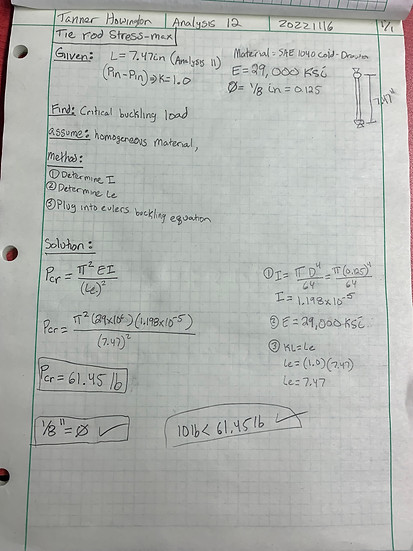 Tanner Howington Analysis 12 20221116 1/1
Tie rod Stress-max
Given: L = 7.47in (Analysis 11)
(Pin-Pin) => K=1.0
Material = SAE 1040 Cold-Drawn
E = 29,000 KSi
Ø = 1/8 in = 0.125
7.47"
Find: Critical buckling load
assume: homogeneous material,
method:
① Determine I
② Determine Le
③ Plug into eulers buckling equation
Solution:
Pcr = π² EI / (Le)²
Pcr = π² (29x10⁶)(1.198x10⁻⁵) / (7.47)²
Pcr = 61.45 lb
1/8" = Ø ✓
① I = πD⁴/64 = π(0.125)⁴/64
I = 1.198x10⁻⁵
② E = 29,000 KSi
③ KL = Le
Le = (1.0)(7.47)
Le = 7.47
10lb < 61.45lb ✓